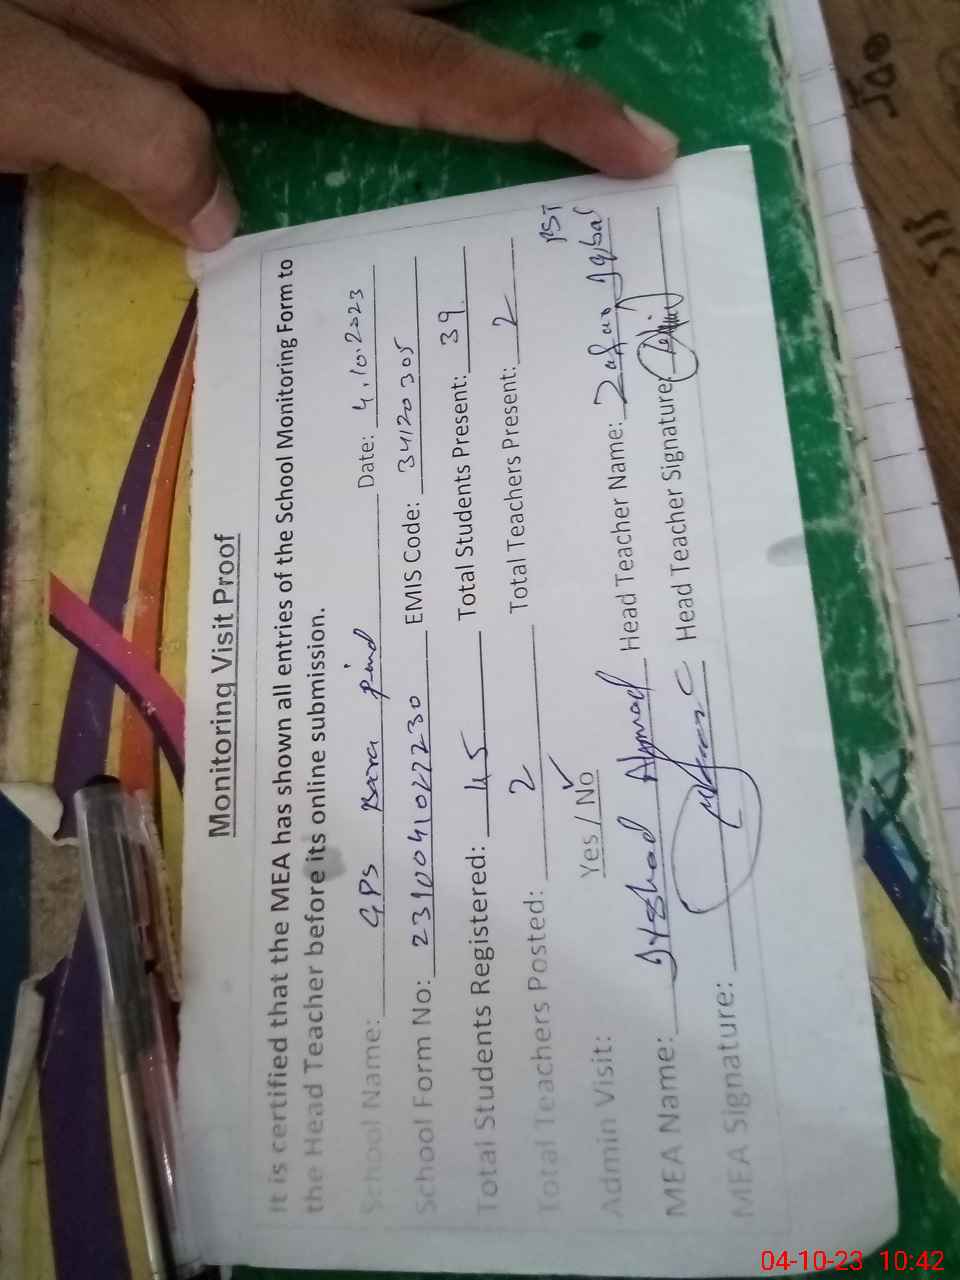 Monitoring Visit Proof
It is certified that the MEA has shown all entries of the School Monitoring Form to
the Head Teacher before its online submission.
School Name: GPS Bara pind Date: 4.10.2023
School Form No: 231004101227230 EMIS Code: 34120305
Total Students Registered: 45 Total Students Present: 39
Total Teachers Posted: 2 Total Teachers Present: 2
Admin Visit: Yes / No ✓
MEA Name: Irshad Ahmad Head Teacher Name: Zafar Iqbal PST
MEA Signature: Head Teacher Signature:
04-10-23 10:42